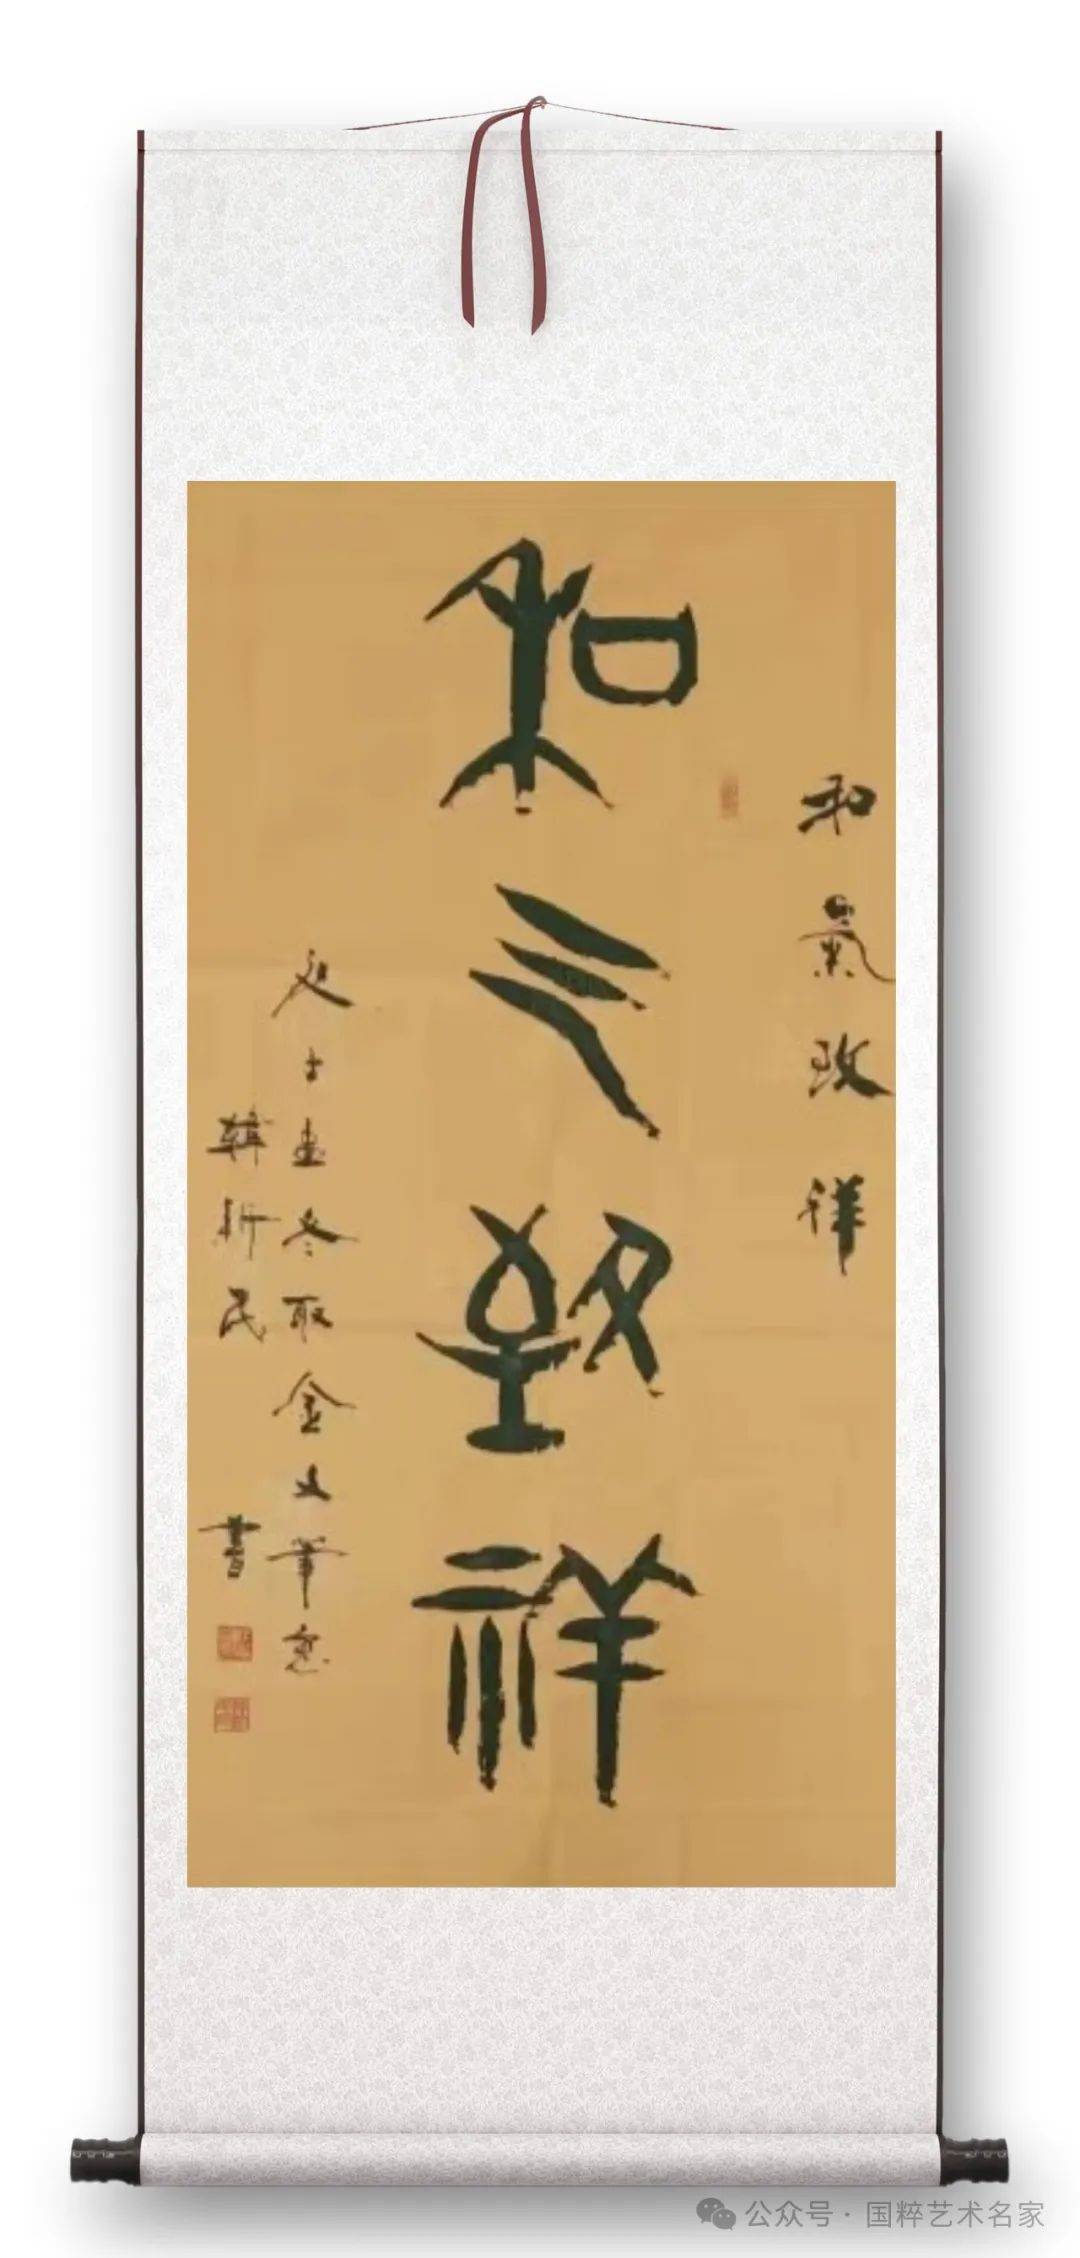 和氣致祥
和气致祥
冬取金文筆意
韓民書
公众号 · 国粹艺术名家